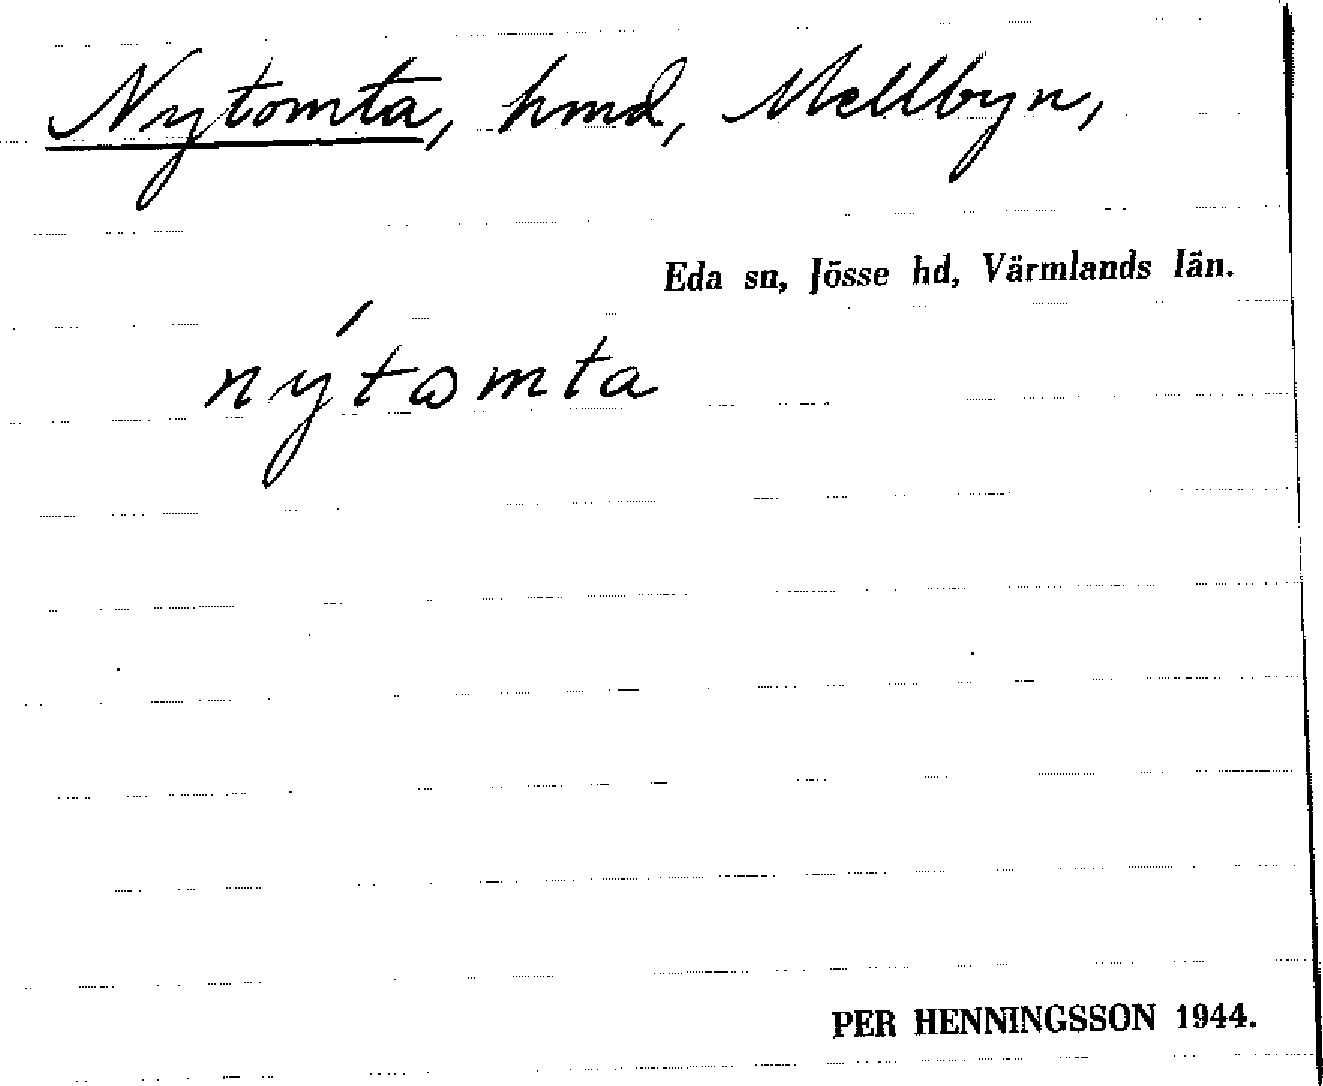 Nytomta, hmd, Mellbyn,
Eda sn, Jösse hd, Värmlands län.
nýtωmta
PER HENNINGSSON 1944.